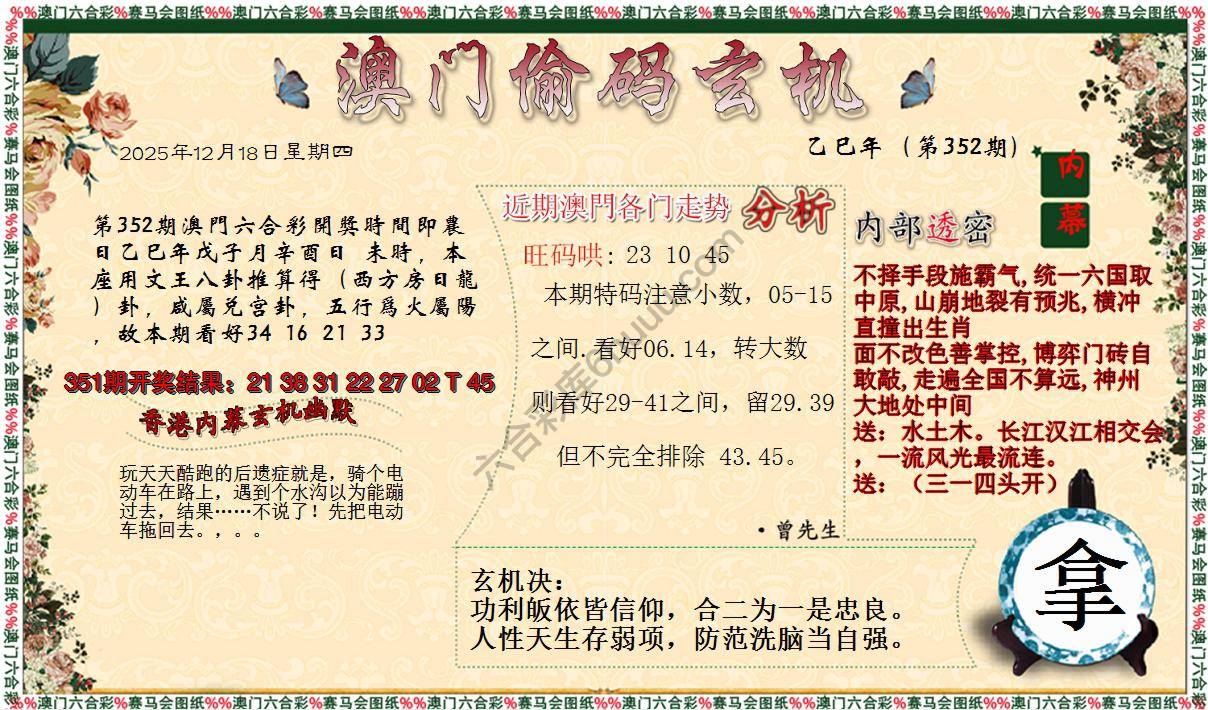 %%澳门六合彩%赛马会图纸%%澳门六合彩%赛马会图纸%%澳门六合彩%赛马会图纸%%澳门六合彩%赛马会图纸%%澳门六合彩%赛马会图纸%%澳门六合彩%赛马会图纸
澳门偷码玄机
2025年12月18日星期四
乙巳年（第352期）
内幕
第352期澳門六合彩開獎時間即農
日乙巳年戊子月辛酉日 未時，本
座用文王八卦推算得（西方房日龍
）卦，咸屬兑宫卦，五行爲火屬陽
，故本期看好34 16 21 33
351期开奖结果：21 38 31 22 27 02 T 45
香港内幕玄机幽默
玩天天酷跑的后遗症就是，骑个电
动车在路上，遇到个水沟以为能蹦
过去，结果……不说了！先把电动
车拖回去。，。。
近期澳門各门走势 分析
旺码哄: 23 10 45
本期特码注意小数，05-15
之间.看好06.14，转大数
则看好29-41之间，留29.39
但不完全排除 43.45。
·曾先生
内部透密
不择手段施霸气,统一六国取
中原,山崩地裂有预兆,横冲
直撞出生肖
面不改色善掌控,博弈门砖自
敢敲,走遍全国不算远,神州
大地处中间
送：水土木。长江汉江相交会
，一流风光最流连。
送：（三一四头开）
玄机决：
功利皈依皆信仰，合二为一是忠良。
人性天生存弱项，防范洗脑当自强。
拿
%%澳门六合彩%赛马会图纸%%澳门六合彩%赛马会图纸%%澳门六合彩%赛马会图纸%%澳门六合彩%赛马会图纸%%澳门六合彩%赛马会图纸%%澳门六合彩%赛马会图纸